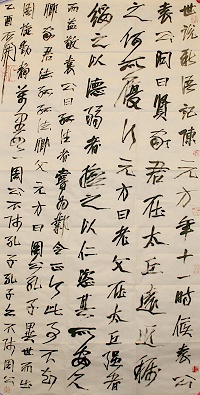 世说新语记陈元方年十一时候袁公
袁公问曰贤家君在太丘远近称
之何所履行元方曰老父在太丘强者
绥之以德弱者抚之以仁恣其所安久
而益敬袁公曰孤往者尝为邺令正行此事不知
卿家君法孤孤法卿父元方曰周公孔子异世而出
周旋动静万里如一周公不师孔子孔子亦不师周公
乙酉